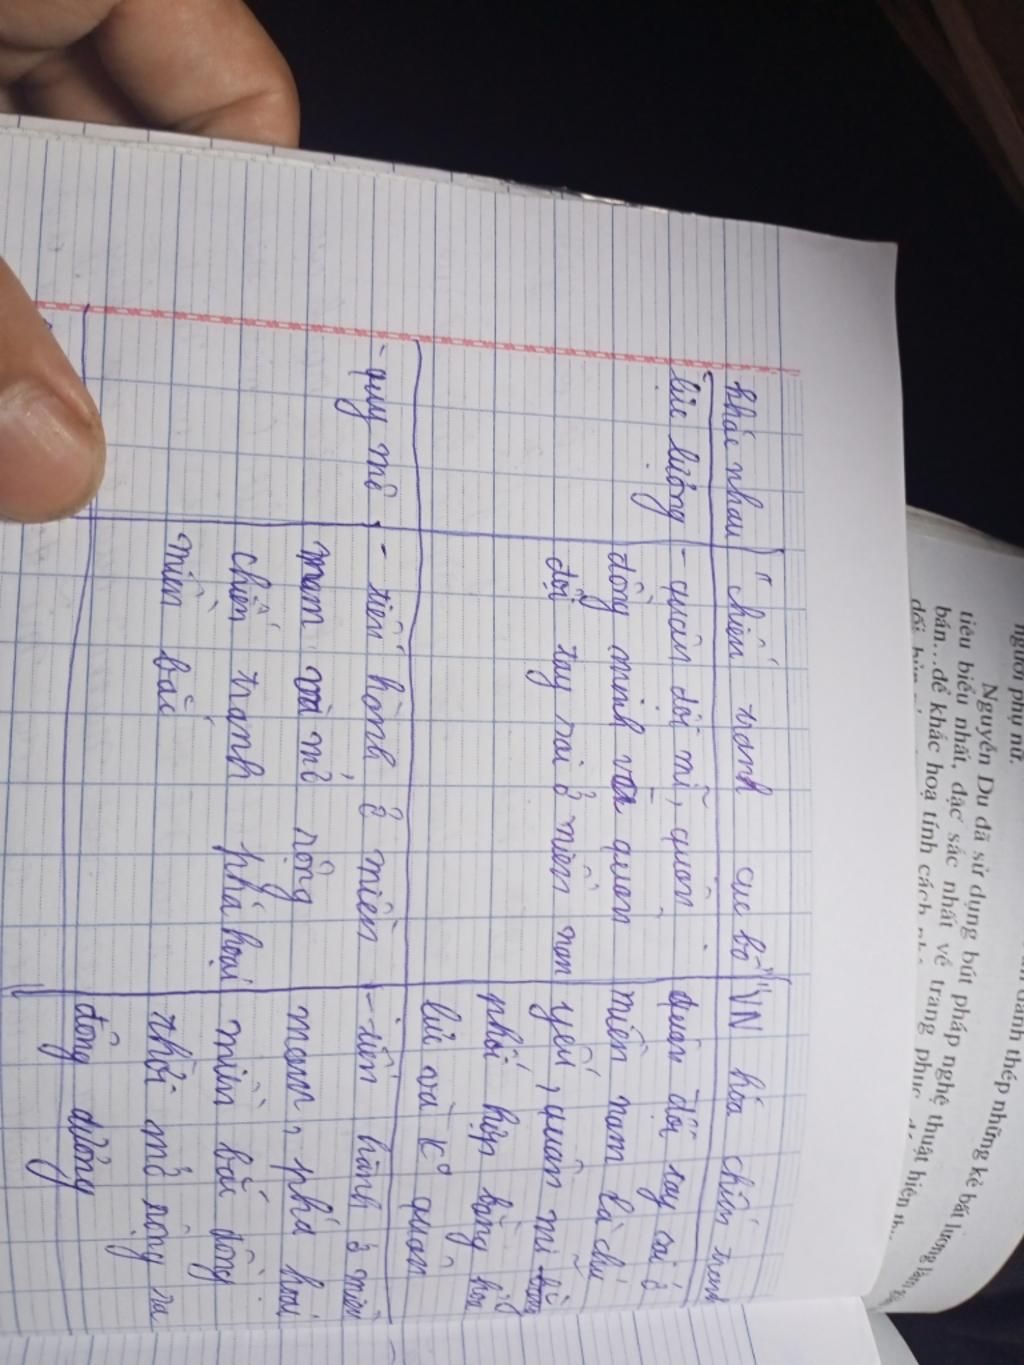 khác nhau " chiến tranh cục bộ " "VN hóa chiến tranh
lực lượng - quân đội mĩ, quân quân đội tay sai ở
đồng minh và quân miền nam là chủ
đội tay sai ở miền nam yếu, quân mĩ
phối hợp bằng hỏa
lực và k° quân
- quy mô - tiến hành ở miền - tiến hành ở miền
nam và mở rộng nam, phá hoại
chiến tranh phá hoại miền bắc đồng
miền bắc thời mở rộng ra
đông dương
người phụ nữ.
Nguyễn Du đã sử dụng bút pháp nghệ thuật hiện
tiêu biểu nhất, đặc sắc nhất về trang phục
bán...để khắc hoạ tính cách
đanh thép những kẻ bất lương